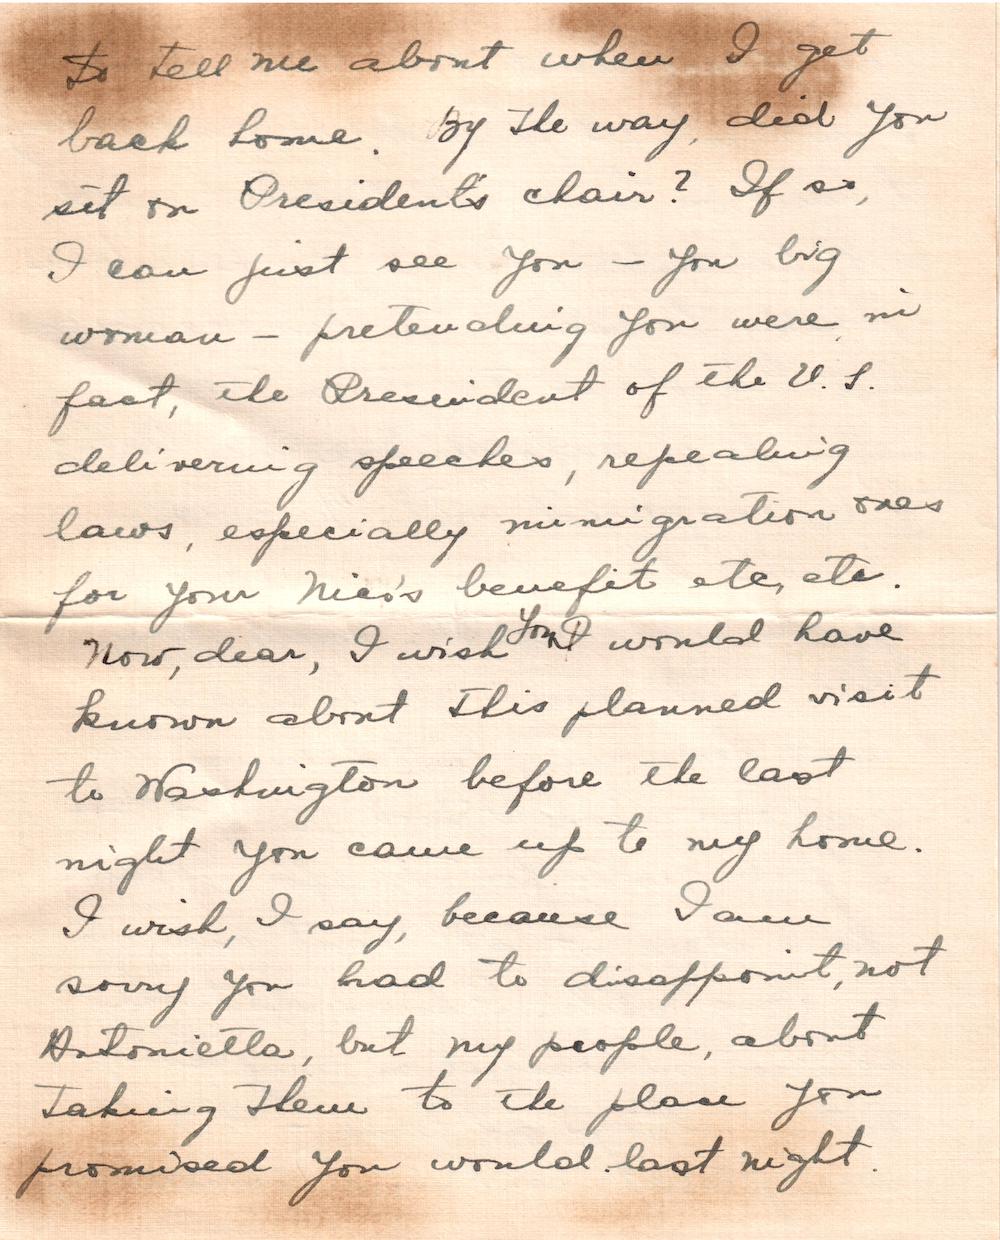 to tell me about when I get
back home. By the way, did you
sit on President's chair? If so,
I can just see you – you big
woman – pretending you were, in
fact, the Presindent of the U.S.
delivering speeches, repealing
laws, especially immigration ones
for your Nico's benefit etc, etc.
Now, dear, I wish you would have
known about this planned visit
to Washington before the last
night you came up to my home.
I wish, I say, because I am
sorry you had to disappoint, not
Antonietta, but my people, about
taking them to the place you
promised you would last night.